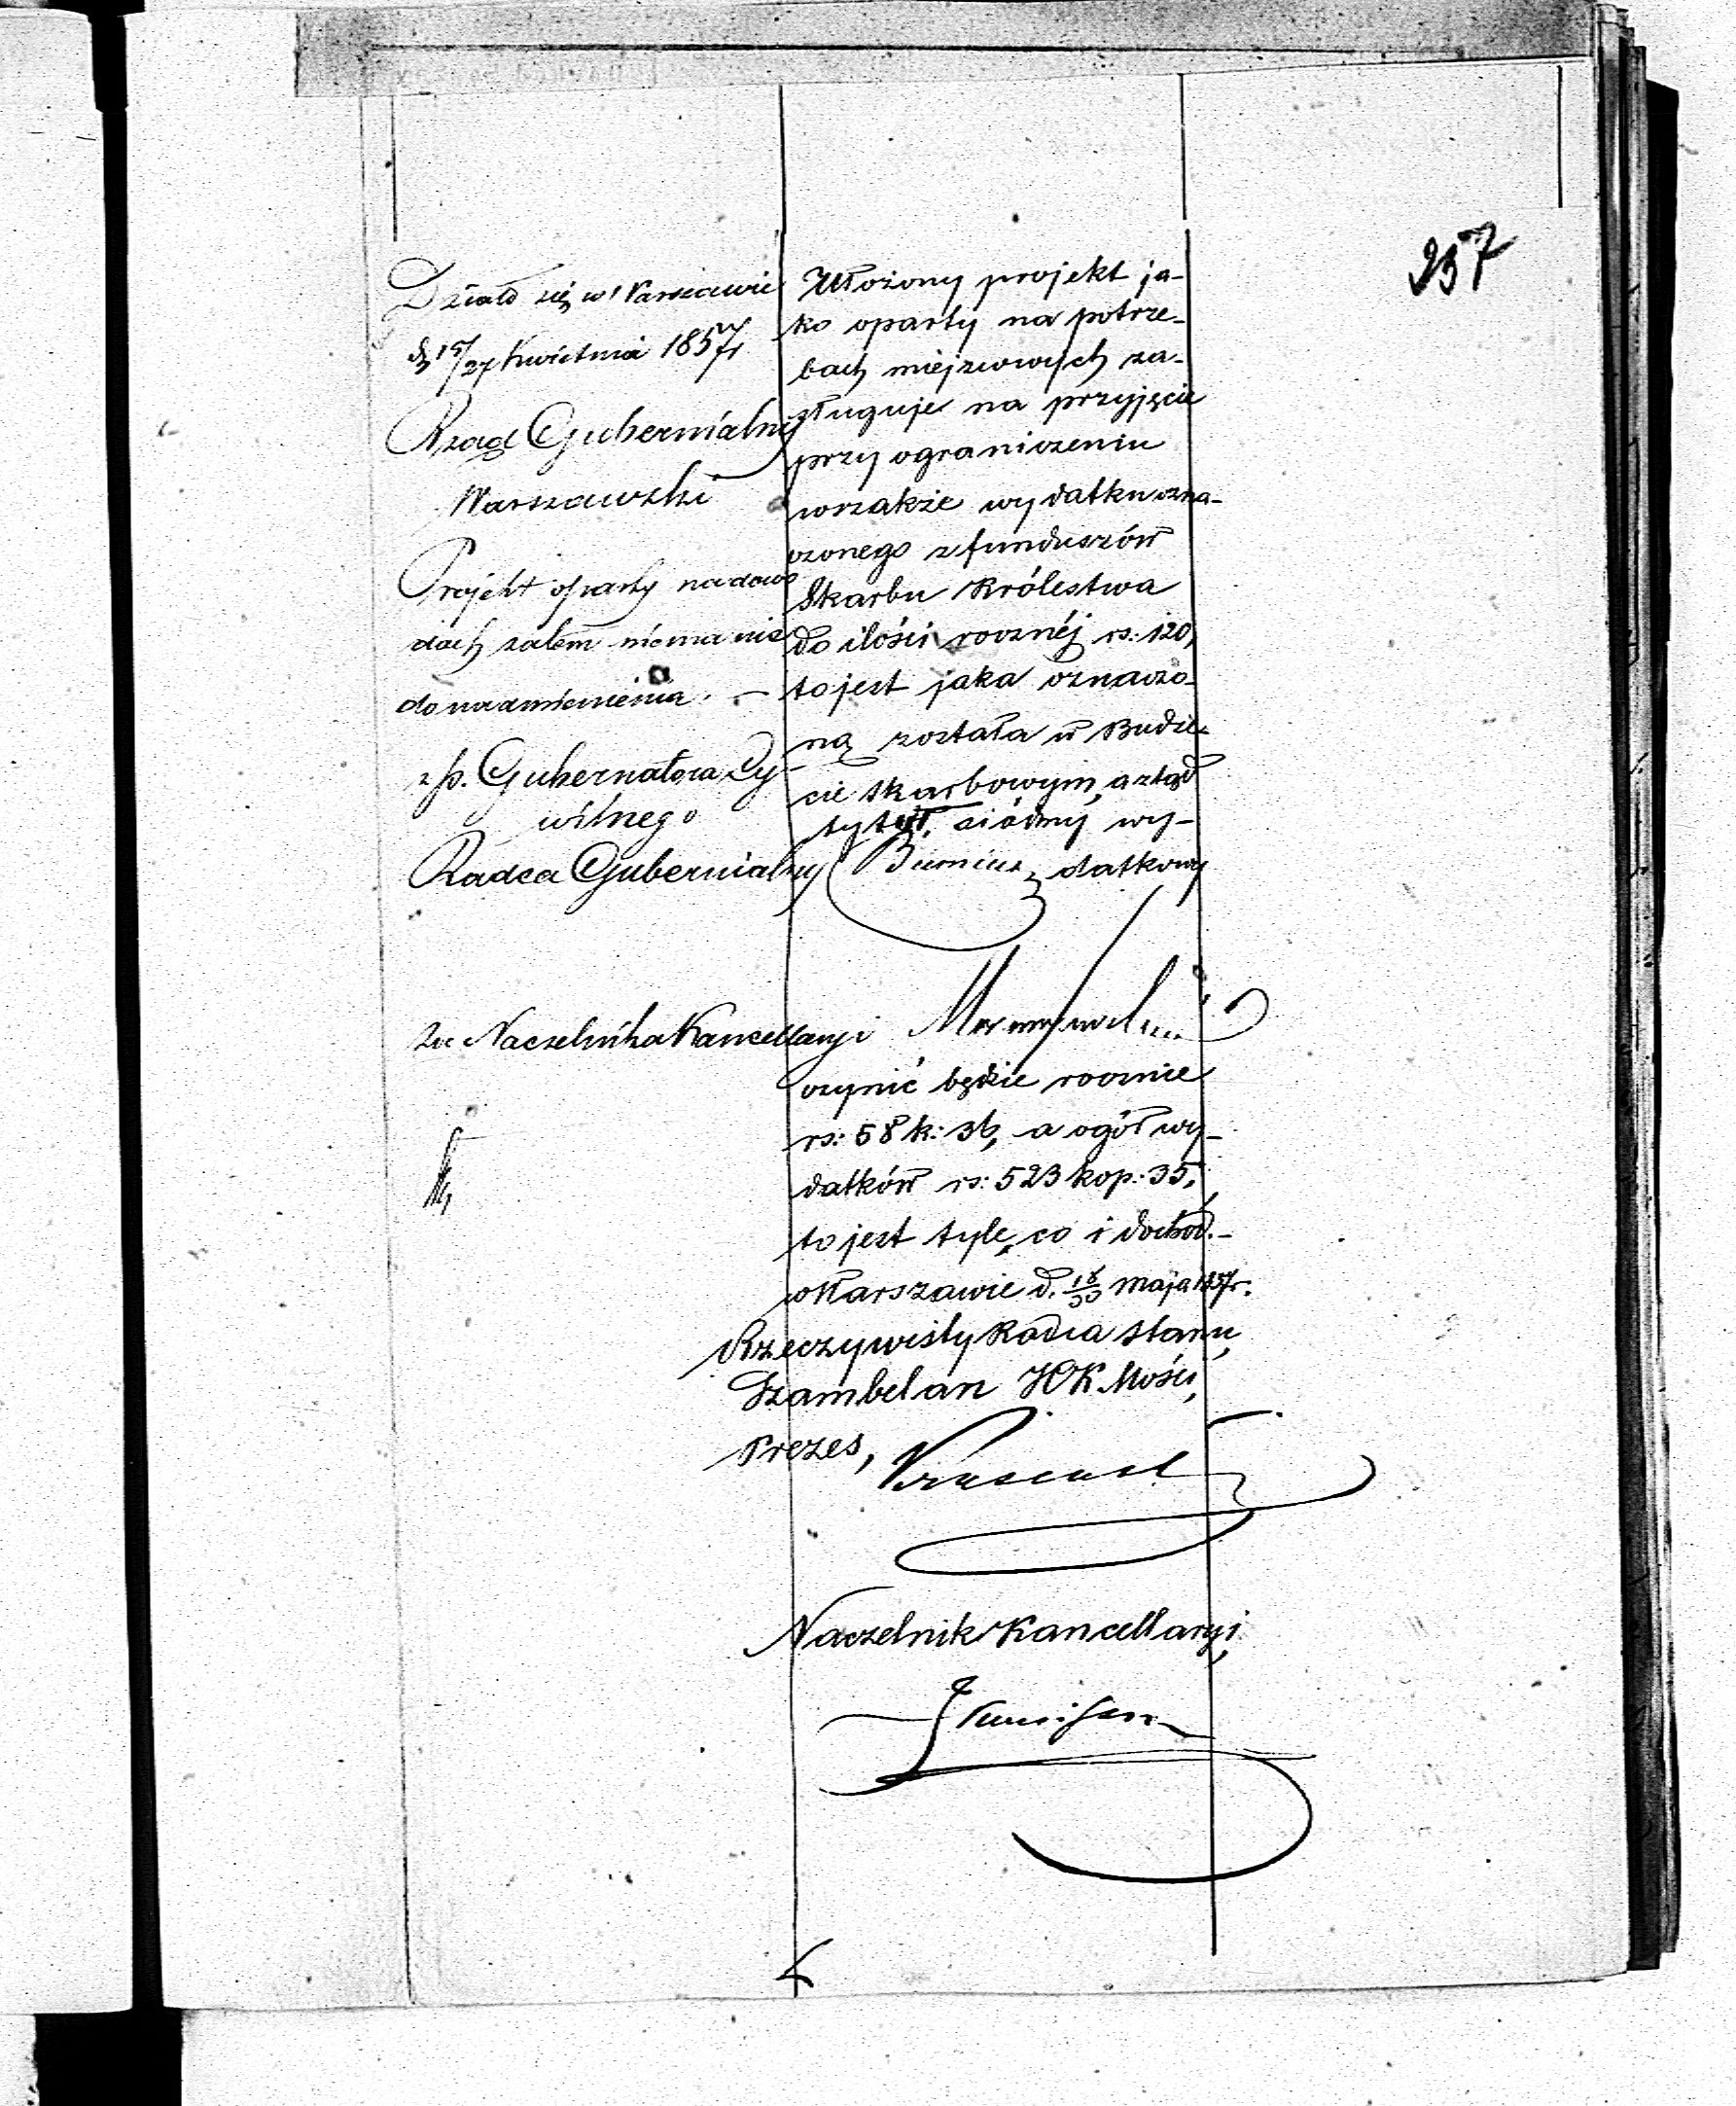 237
Działo się w Warszawie
d. 15/27 Kwietnia 1857 r.
Rząd Gubernialny
Warszawski
Projekt oparty na dowo
dach zatem niema nic
do nadmienienia. —
z p. Gubernatora Cy-
wilnego
Radca Gubernialny
za Naczelnika Kancellaryi
Ułożony projekt ja-
ko oparty na potrze-
bach miejscowych za-
sługuje na przyjęcie
przy ograniczeniu
wszakże wydatku ozna-
czonego z funduszów
Skarbu Królestwa
do ilości rocznéj rs: 120,
to jest jaka oznaczo-
ną została w Budże-
cie Skarbowym, a ztąd
tytuł siódmy wy-
datkowy
czynić będzie rocznie
rs: 58 k: 36, a ogół wy-
datków rs: 523 kop: 35,
to jest tyle, co i dochod.-
w Warszawie d. 18/30 Maja 1857 r.
Rzeczywisty Radca Stanu,
Szambelan JCK Mości,
Prezes,
Naczelnik Kancellaryi